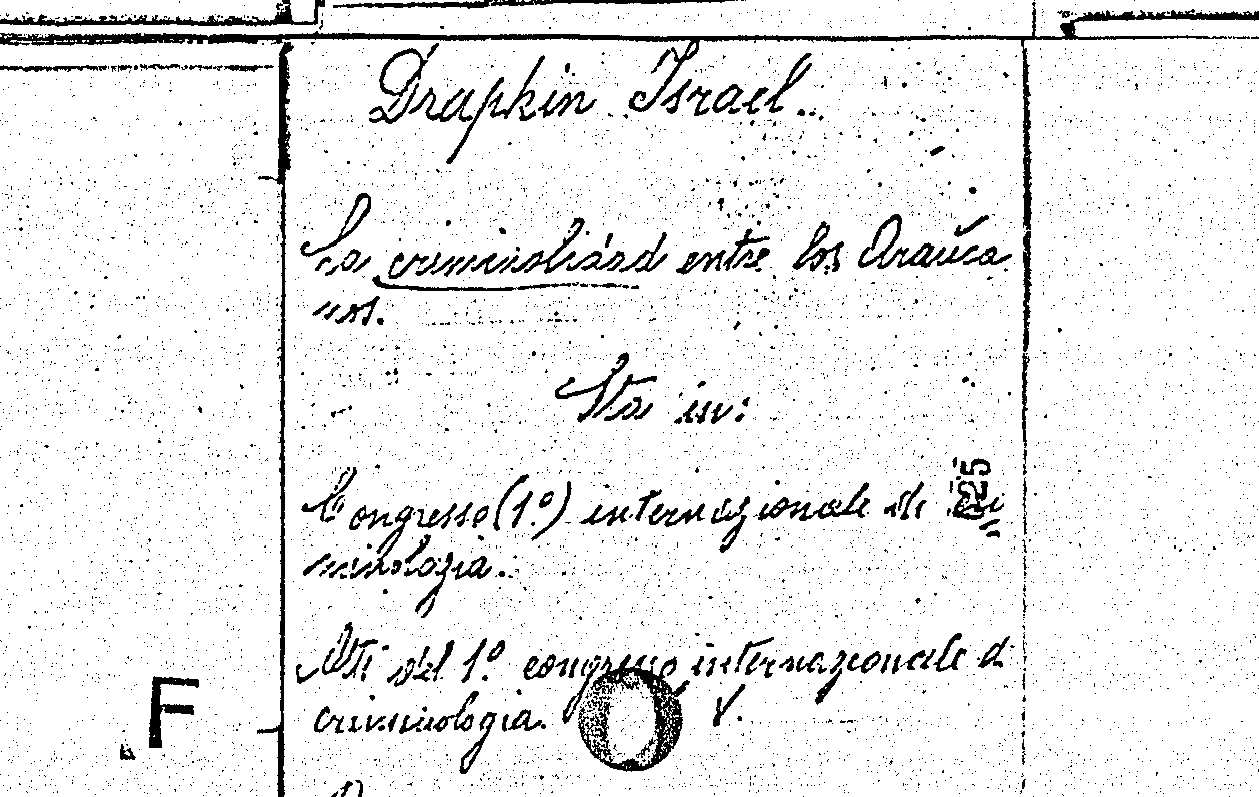 Drapkin Israel..
La criminoliásd entre los Arauca
nos.
Sta in:
Congresso (1º) internazionale di cri
minologia.
Atti del 1º congresso internazionale di
criminologia. V.
225
F